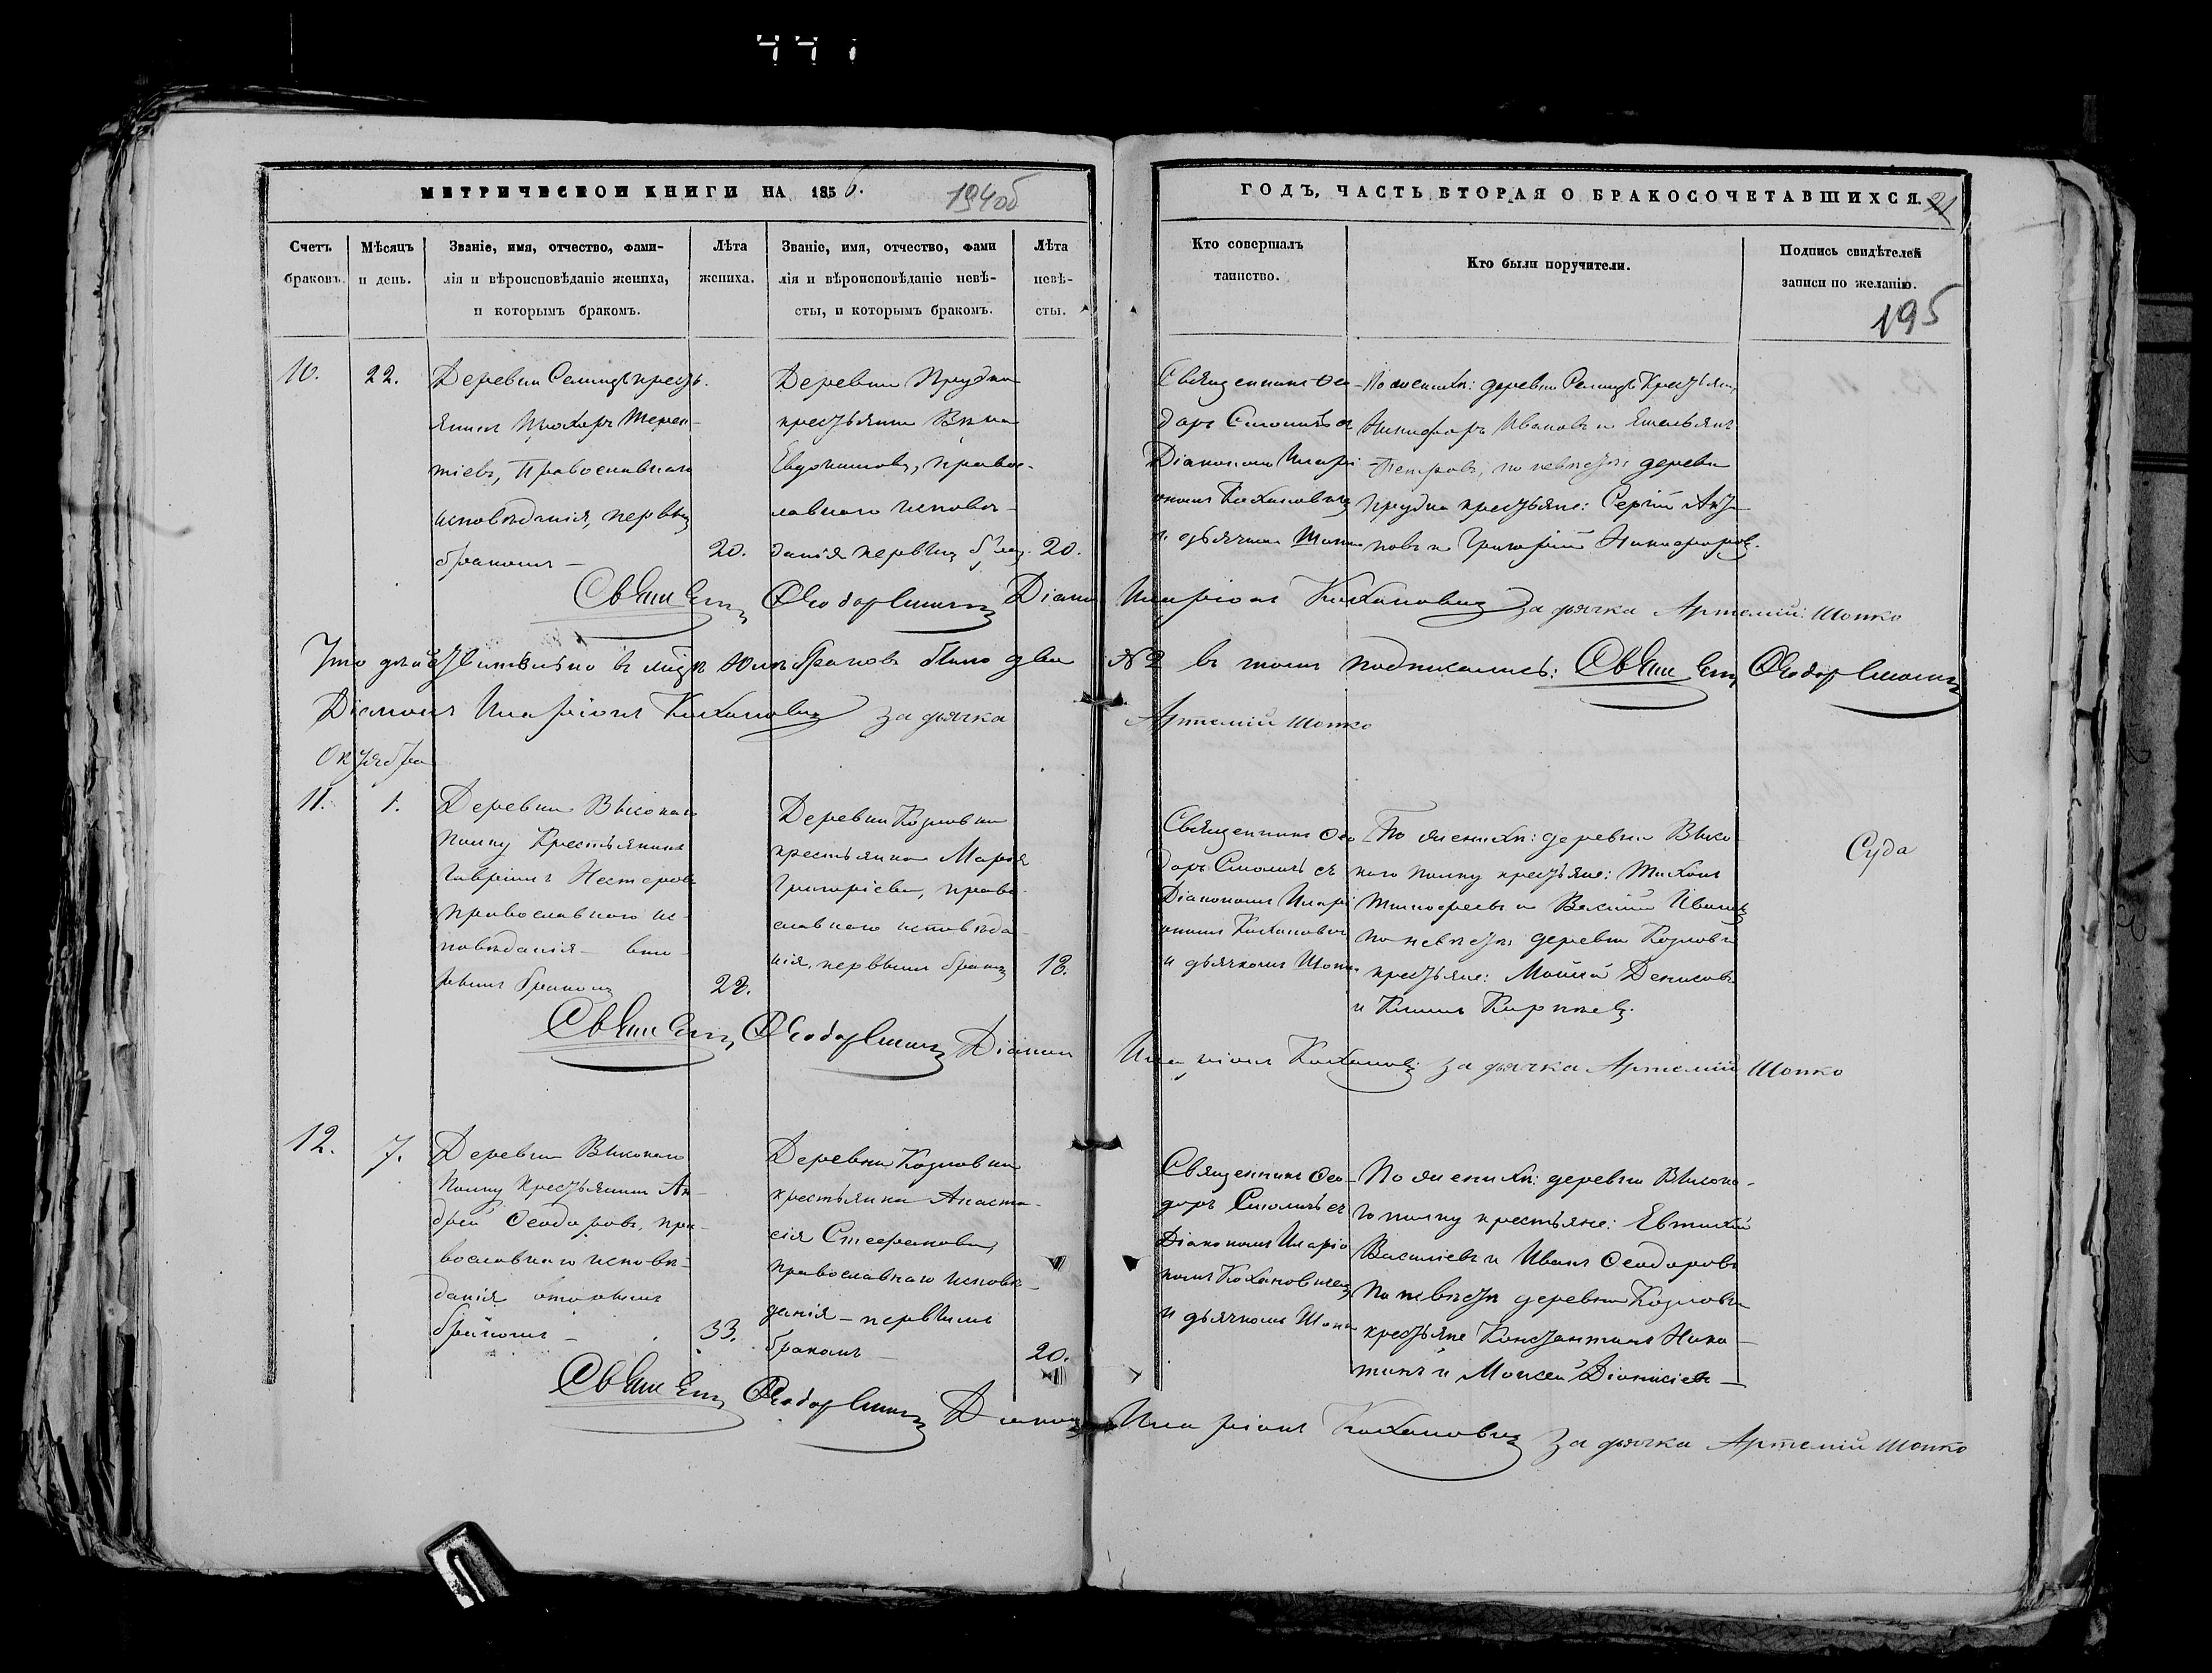 МЕТРИЧЕСКОЙ КНИГИ НА 1856.
194об
ГОДЪ, ЧАСТЬ ВТОРАЯ О БРАКОСОЧЕТАВШИХСЯ.
195
Счетъ браковъ.
Мѣсяцъ и день.
Званіе, имя, отчество, фами-
лія и вѣроисповѣданіе жениха,
и которымъ бракомъ.
Лѣта жениха.
Званіе, имя, отчество, фами
лія и вѣроисповѣданіе невѣ-
сты, и которымъ бракомъ.
Лѣта невѣ-
сты.
Кто совершалъ
таинство.
Кто были поручители.
Подпись свидѣтелей
записи по желанію.
10.
22.
Деревни
янинъ Прохоръ Терен-
тіевъ, Православнаго
исповѣданія, первымъ
бракомъ —
20.
Деревни Прудка
крестьянка
Евдокимова, правос-
лавнаго исповѣ-
данія первымъ
20.
Священникъ Ѳео-
доръ съ
Діакономъ Иларі
ономъ Кохановичемъ
и дьячкомъ
По женихѣ: деревни
Никифоръ Ивановъ и Емельянъ
Петровъ, по невѣстѣ: деревни
Прудка крестьяне: Сергій
и Григорій Никифоровъ.
Священ Ѳеодоръ Діаконъ
Иларіонъ Кохановичъ За дьячка Артемій Шопко
Что дѣйствительно въ браковъ было два
№ 2 въ томъ подписались: Священ Ѳеодоръ
Діаконъ Иларіонъ Кохановичъ За дьячка
Артемій Шопко
Октября
11.
1.
Деревни Высокаго
Полку Крестьянинъ
Гавріилъ Нестеровъ
православнаго ис-
повѣданія — вто-
рымъ бракомъ
22.
Деревни Козловки
крестьянка Марія
Григоріева, право-
славнаго исповѣда-
нія, первымъ бракомъ
18.
Священникъ Ѳео
доръ съ
Діакономъ Иларі
ономъ Кохановичемъ
и дьячкомъ
По женихѣ: деревни Высо-
каго полку крестьяне: Тихонъ
Тимофеевъ и Василій Ивановъ
по невѣстѣ: деревни Козловки
крестьяне: Моисей Денисовъ
и
Суда
Священ Ѳеодоръ Діаконъ
Иларіонъ Кохановичъ За дьячка Артемій Шопко
12.
7.
Деревни Высокаго
Полку крестьянинъ Ан-
дрей Ѳеодоровъ, пра-
вославнаго исповѣ-
данія вторымъ
бракомъ —
33.
Деревни Козловки
крестьянка Анаста-
сія Стефанова,
православнаго исповѣ-
данія — первымъ
бракомъ —
20.
Священникъ Ѳео-
доръ съ
Діакономъ Иларіо
номъ Кохановичемъ
и дьячкомъ
По женихѣ: деревни Высока-
го полку крестьяне: Евтихій
Василіевъ и Иванъ Ѳеодоровъ
По невѣстѣ деревни Козловки
крестьяне Константинъ
и Моисей Діонисіевъ —
Священ Ѳеодоръ Діаконъ
Иларіонъ Кохановичъ За дьячка Артемій Шопко